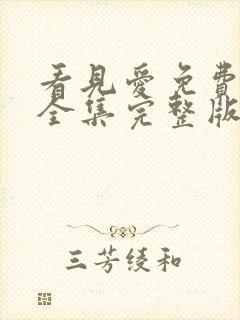 看見愛免費
全集完整版
三芳绫和